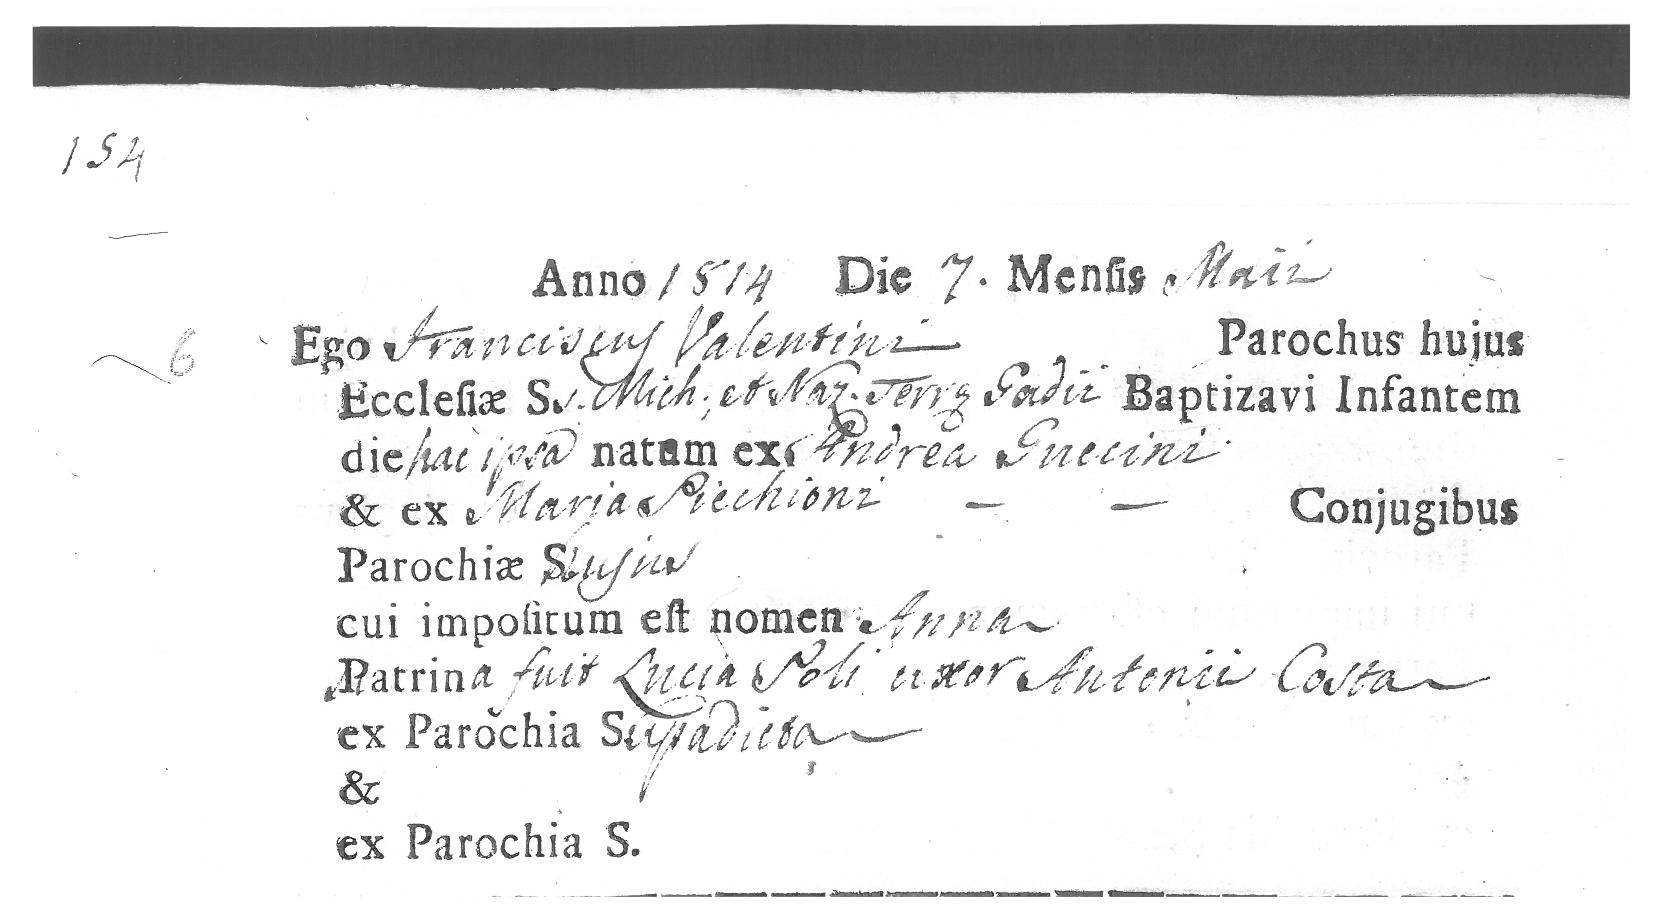 154
Anno 1814 Die 7. Menſis Maii
6
Ego Franciscus Valentini Parochus hujus
Eccleſiæ Ss. Mich. et Naz. Terrę Gadii Baptizavi Infantem
die hac ipsa natam ex Andrea Guccini
& ex Maria Picchioni — — Conjugibus
Parochiæ Hujus
cui impoſitum eſt nomen Anna
Patrina fuit Lucia Poli uxor Antonii Costa
ex Parochia Supadicta
&
ex Parochia S.